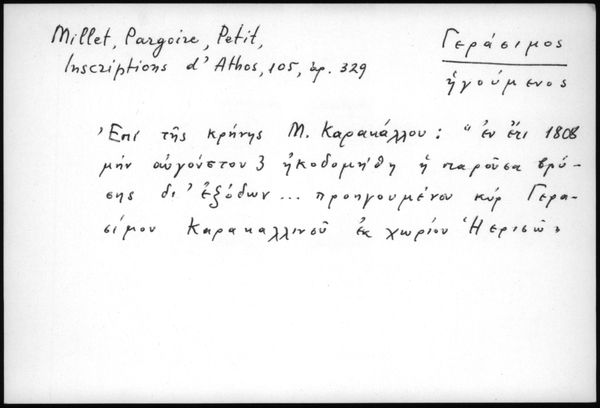 Millet, Pargoire, Petit,
Inscriptions d'Athos, 105, ἀρ. 329
Γεράσιμος
ἡγούμενος
Ἐπὶ τῆς κρήνης Μ. Καρακάλλου: "ἐν ἔτι 1808
μὴν αὐγούστου 3 ἠκοδομήθη ἡ παροῦσα βρύ-
σης δι' ἐξόδων... προηγουμένου κύρ Γερα-
σίμου Καρακαλλινοῦ ἐκ χωρίου Ἡερισῶ"